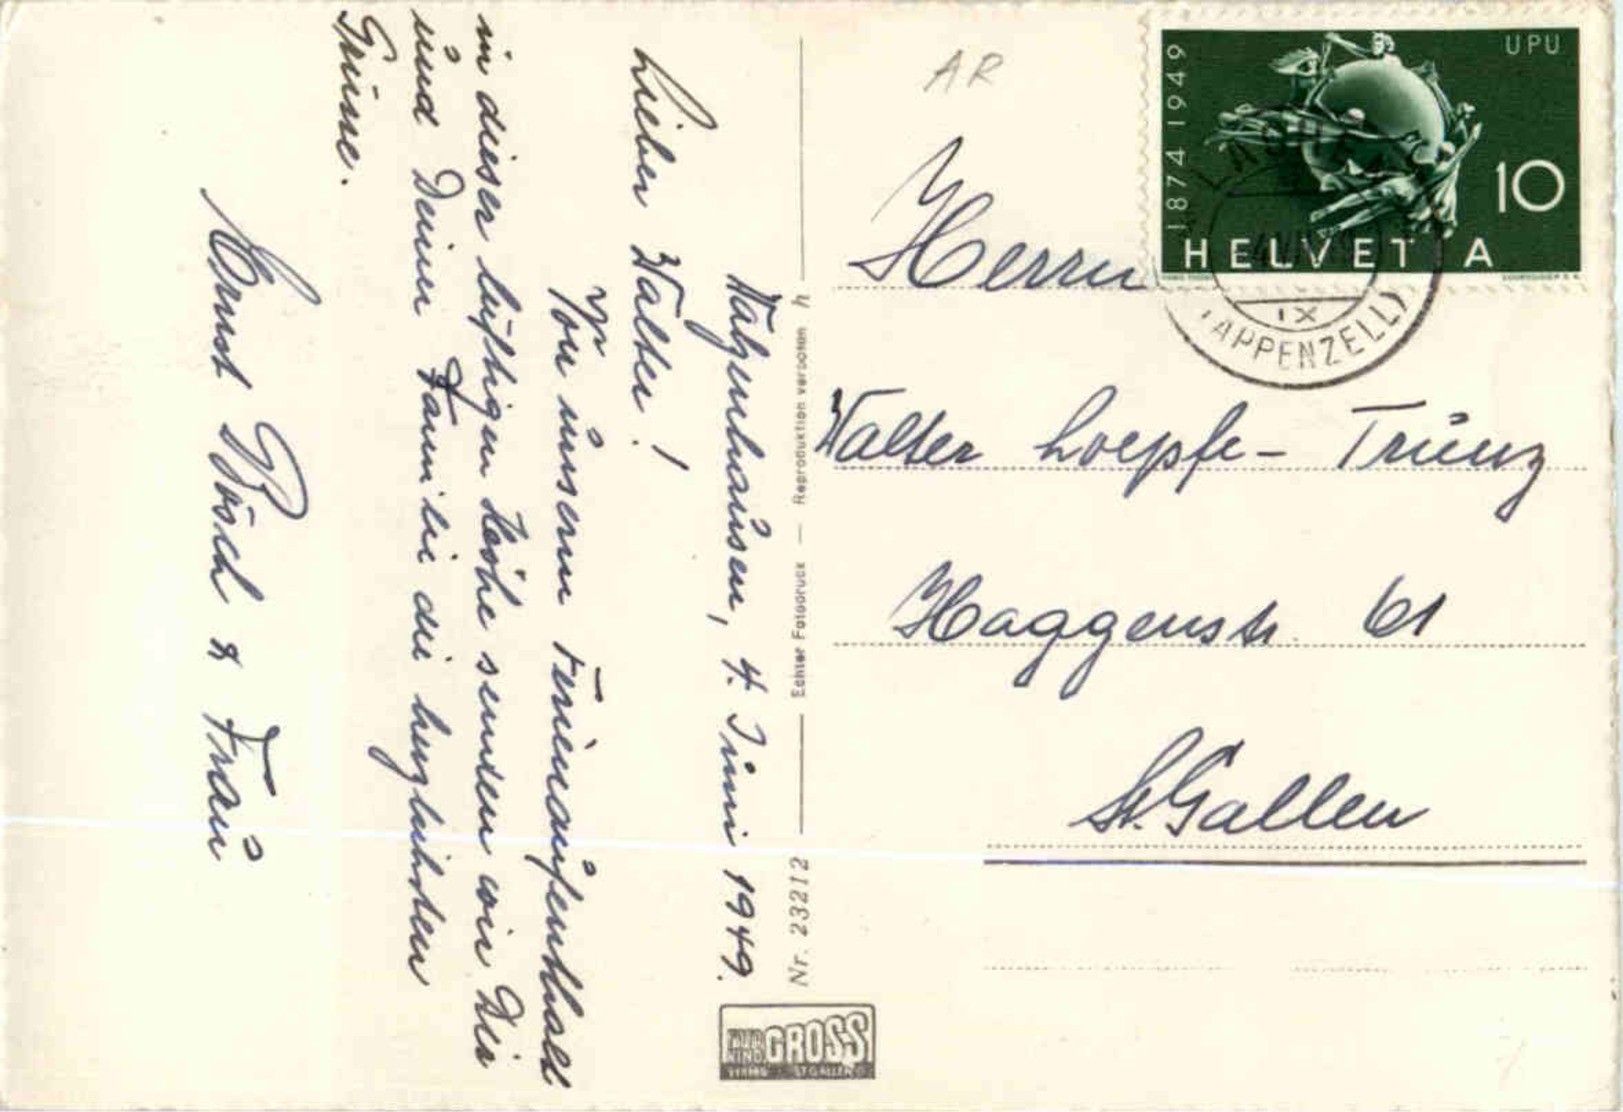 Walzenhausen, 4. Juni 1949.
Lieber Walter!
Von unserm Ferienaufenthalt
in dieser luftigen Höhe senden wir Dir
und Deiner Familie die herzlichsten
Grüsse.
Ernst Bösch & Frau
Nr. 23212 — Echter Fotodruck — Reproduktion verboten h
GROSS
ST. GALLEN
AR
1874 1949
UPU
10
HELVETIA
IX
(APPENZELL)
Herrn
Walter Loepfe-Trüeng
Haggenstr. 61
St. Gallen